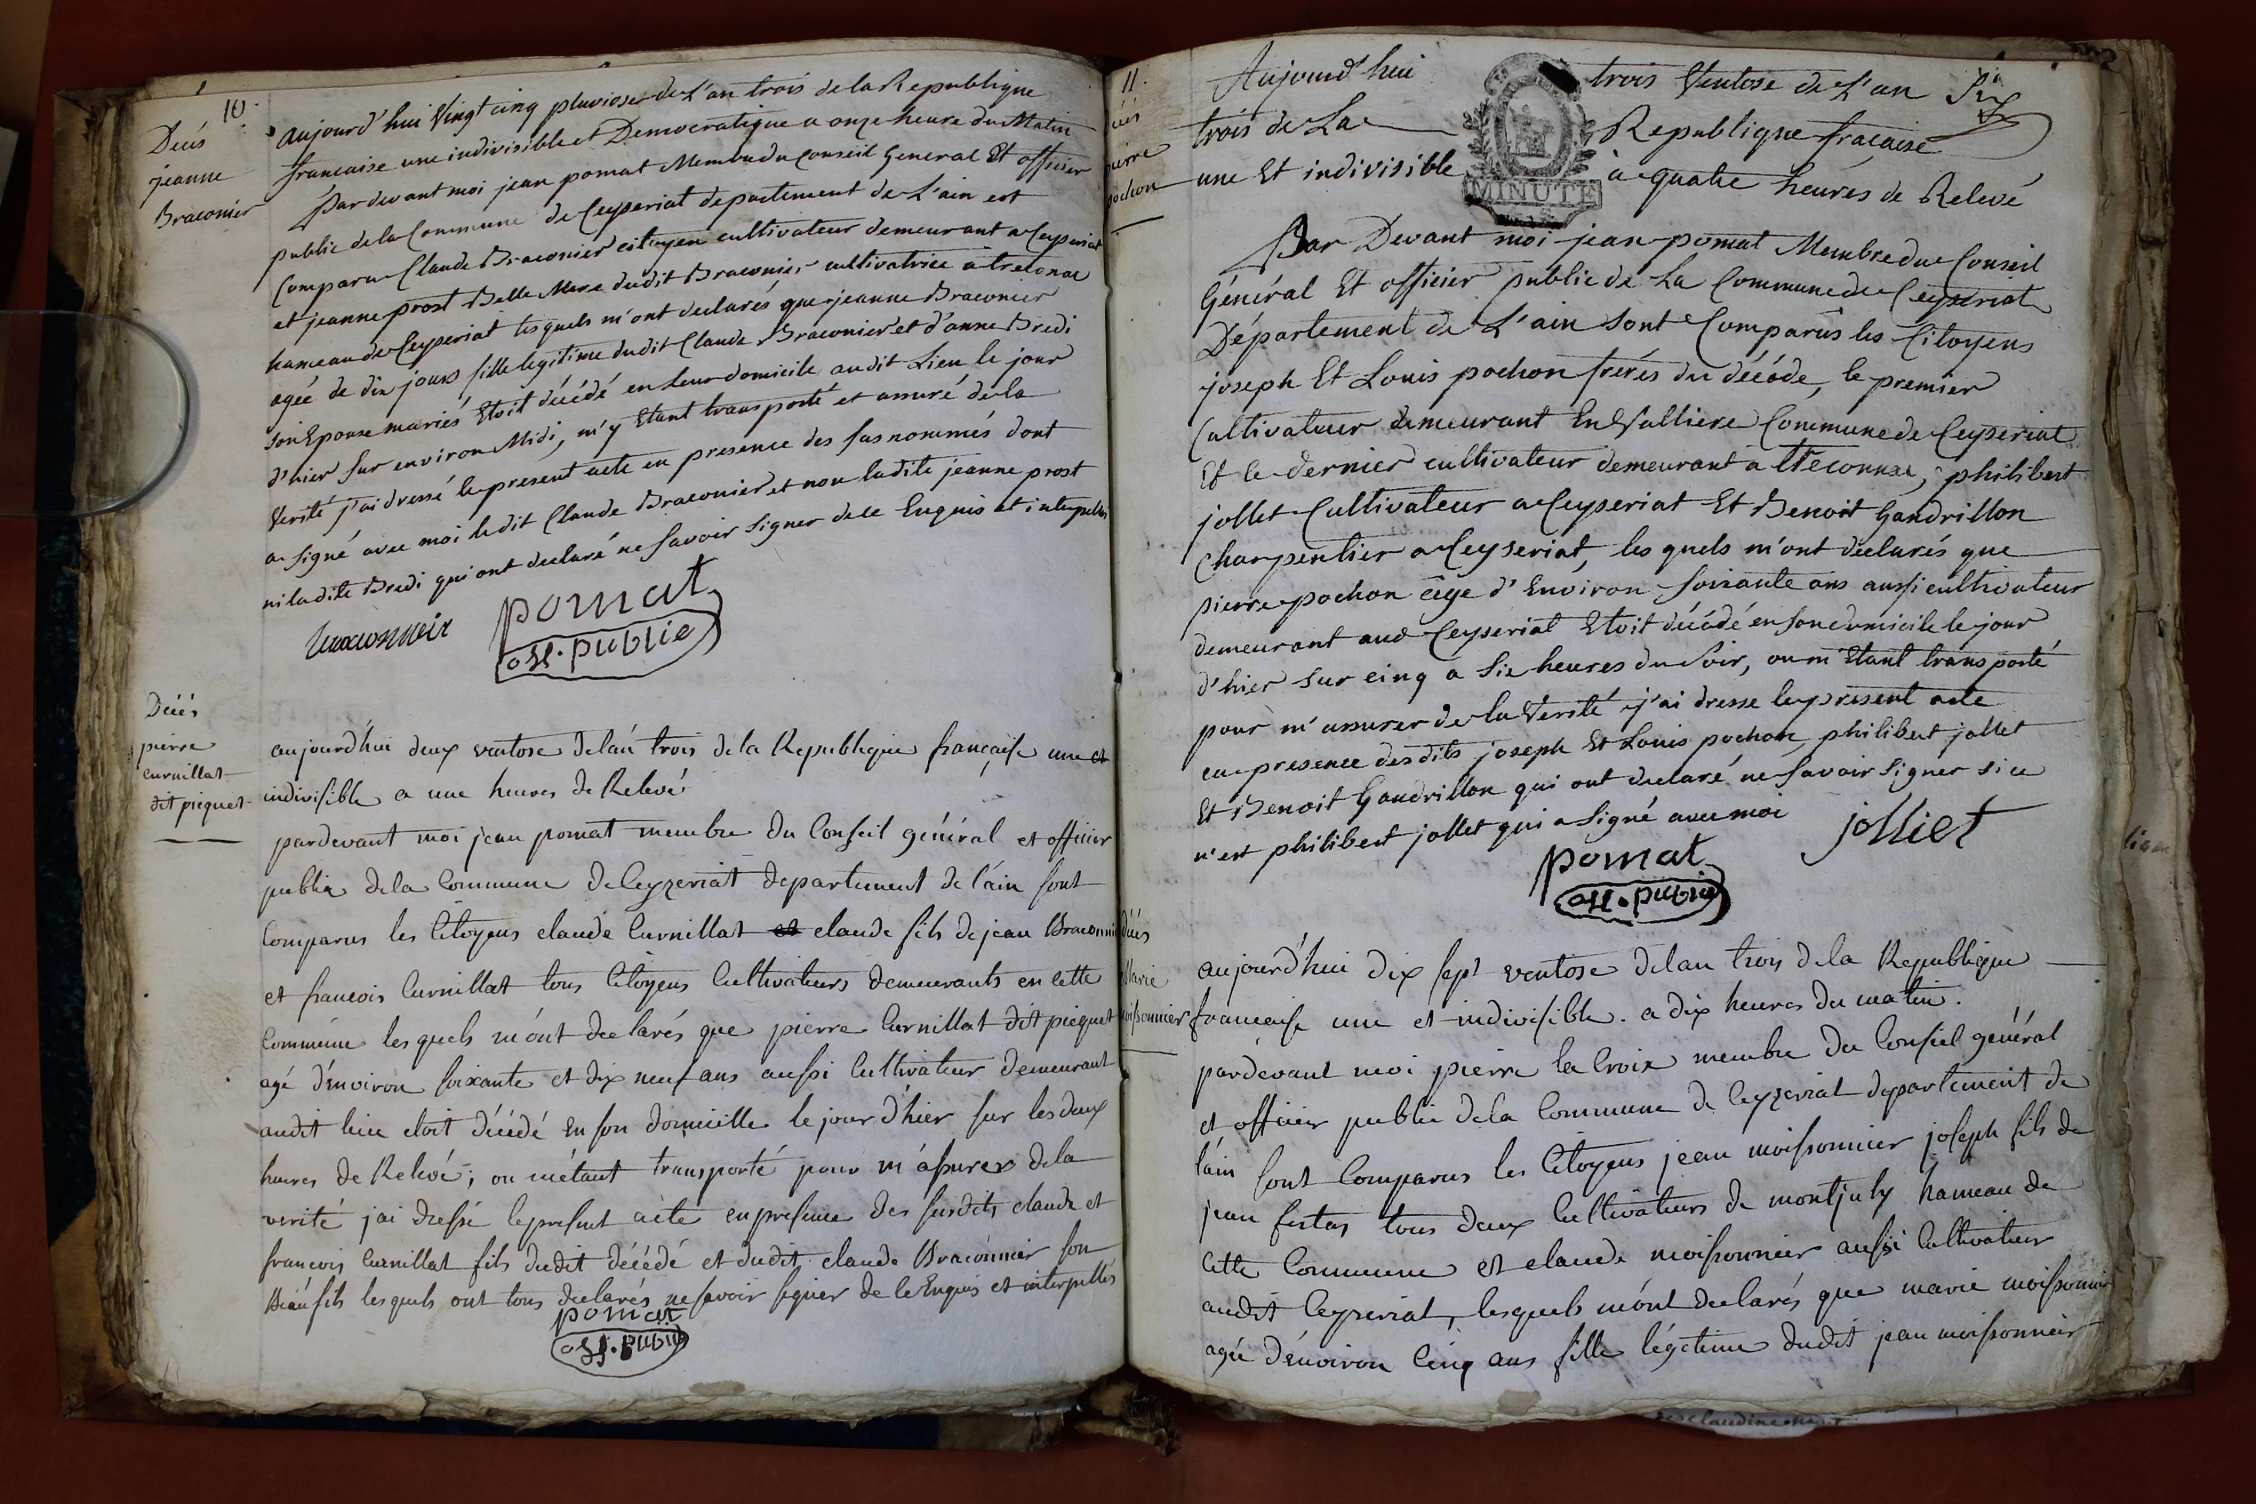 10.
Décés
jeanne
Braconier
aujourd'hui Vingt cinq pluviose de L'an trois de la Republique
francaise une indivisible et Democratique a onze heure du Matin
Par devant moi jean pomat Membre du Conseil General Et officier
public de la Commune de Ceyseriat departement de L'ain est
Comparu Claude Braconier citoyen cultivateur demeurant a Ceyseriat
et jeanne prost Belle Mere dudit Braconier cultivatrice a treconae
hameau de Ceyseriat lesquels m'ont declarés que jeanne Braconier
agée de dix jours fille legitime dudit Claude Braconier et d'anne Bredi
son Epouse mariés Etoit décédé en leur domicile audit Lieu le jour
d'hier sur environ Midi, m'y Etant transporté et assuré de la
Verité j'ai dressé le present acte en presence des susnommés dont
a signé avec moi ledit Claude Braconier et non ladite jeanne prost
ni ladite Bredi qui ont declaré ne savoir signer de ce Enquis et interpellés
pomat
off. public
Décés
pierre
curnillat
dit piequet
aujourd'hui deux ventose de l'an trois de la Republique française une et
indivisible a une heures de Relevé
pardevant moi jean pomat membre du Conseil général et officier
public de la Commune de Ceyzeriat departement de l'ain sont
Comparus les Citoyens claude Curnillat et claude fils de jean Braconnier
et francois Curnillat tous Citoyens Cultivateurs demeurants en cette
Commune lesquels m'ont declarés que pierre Curnillat dit piequet
agé d'environ soixante et dix neuf ans aussi Cultivateur demeurant
audit lieu etoit décédé en son domicille le jour d'hier sur les deux
heures de Relevé; ou m'étant transporté pour m'assurer de la
verité j'ai dressé le present acte en presence des susdits claude et
francois Curnillat fils dudit décédé et dudit claude Braconnier son
Beaufils lesquels ont tous declarés ne savoir signer de ce Enquis et interpellés
pomat
off. public
11.
pierre
pochon
Aujourd'hui trois Ventose de L'an Six
trois de La Republique fracaise
une Et indivisible à quatre heures de Relevé
MINUTE
Par Devant moi jean pomat Membre du Conseil
Général Et officier public de La Commune de Ceyseriat
Département de L'ain sont Comparûs les Citoyens
joseph Et Louis pochon fréres du décédé, le premier
Cultivateur demeurant En Valliere Commune de Ceyseriat
Et le dernier cultivateur demeurant a treconnae; philibert
jollet Cultivateur a Ceyseriat Et Benoit Gandrillon
Charpentier a Ceyseriat, les quels m'ont déclarés que
pierre pochon âge d'Environ soixante ans aussi cultivateur
demeurant aud Ceyseriat Etoit décédé en son domicile le jour
d'hier sur cinq a six heures du soir, ou m'Etant transporté
pour m'assurer de la Verité j'ai dresse le present acte
en presence desdits joseph Et Louis pochon, philibert jollet
Et Benoit Gandrillon qui ont declaré ne savoir signer si ce
n'est philibert jollet qui a signé avec moi
jolliet
pomat
off. public
décés
Marie
moissonnier
aujourd'hui dix sept ventose de lan trois de la Republique
francaise une et indivisible. a dix heures du matin.
pardevant moi pierre la Croix membre du Conseil général
et officier public de la Commune de Ceyzeriat departement de
l'ain sont Comparus les Citoyens jean moissonnier joseph fils de
jean festas tous deux Cultivateurs de montjuly hameau de
Cette Commune et claude moissonnier aussi Cultivateur
audit Ceyzeriat, lesquels m'ont declarés que marie moissonnier
agée d'environ Cinq ans fille légitime dudit jean moissonnier